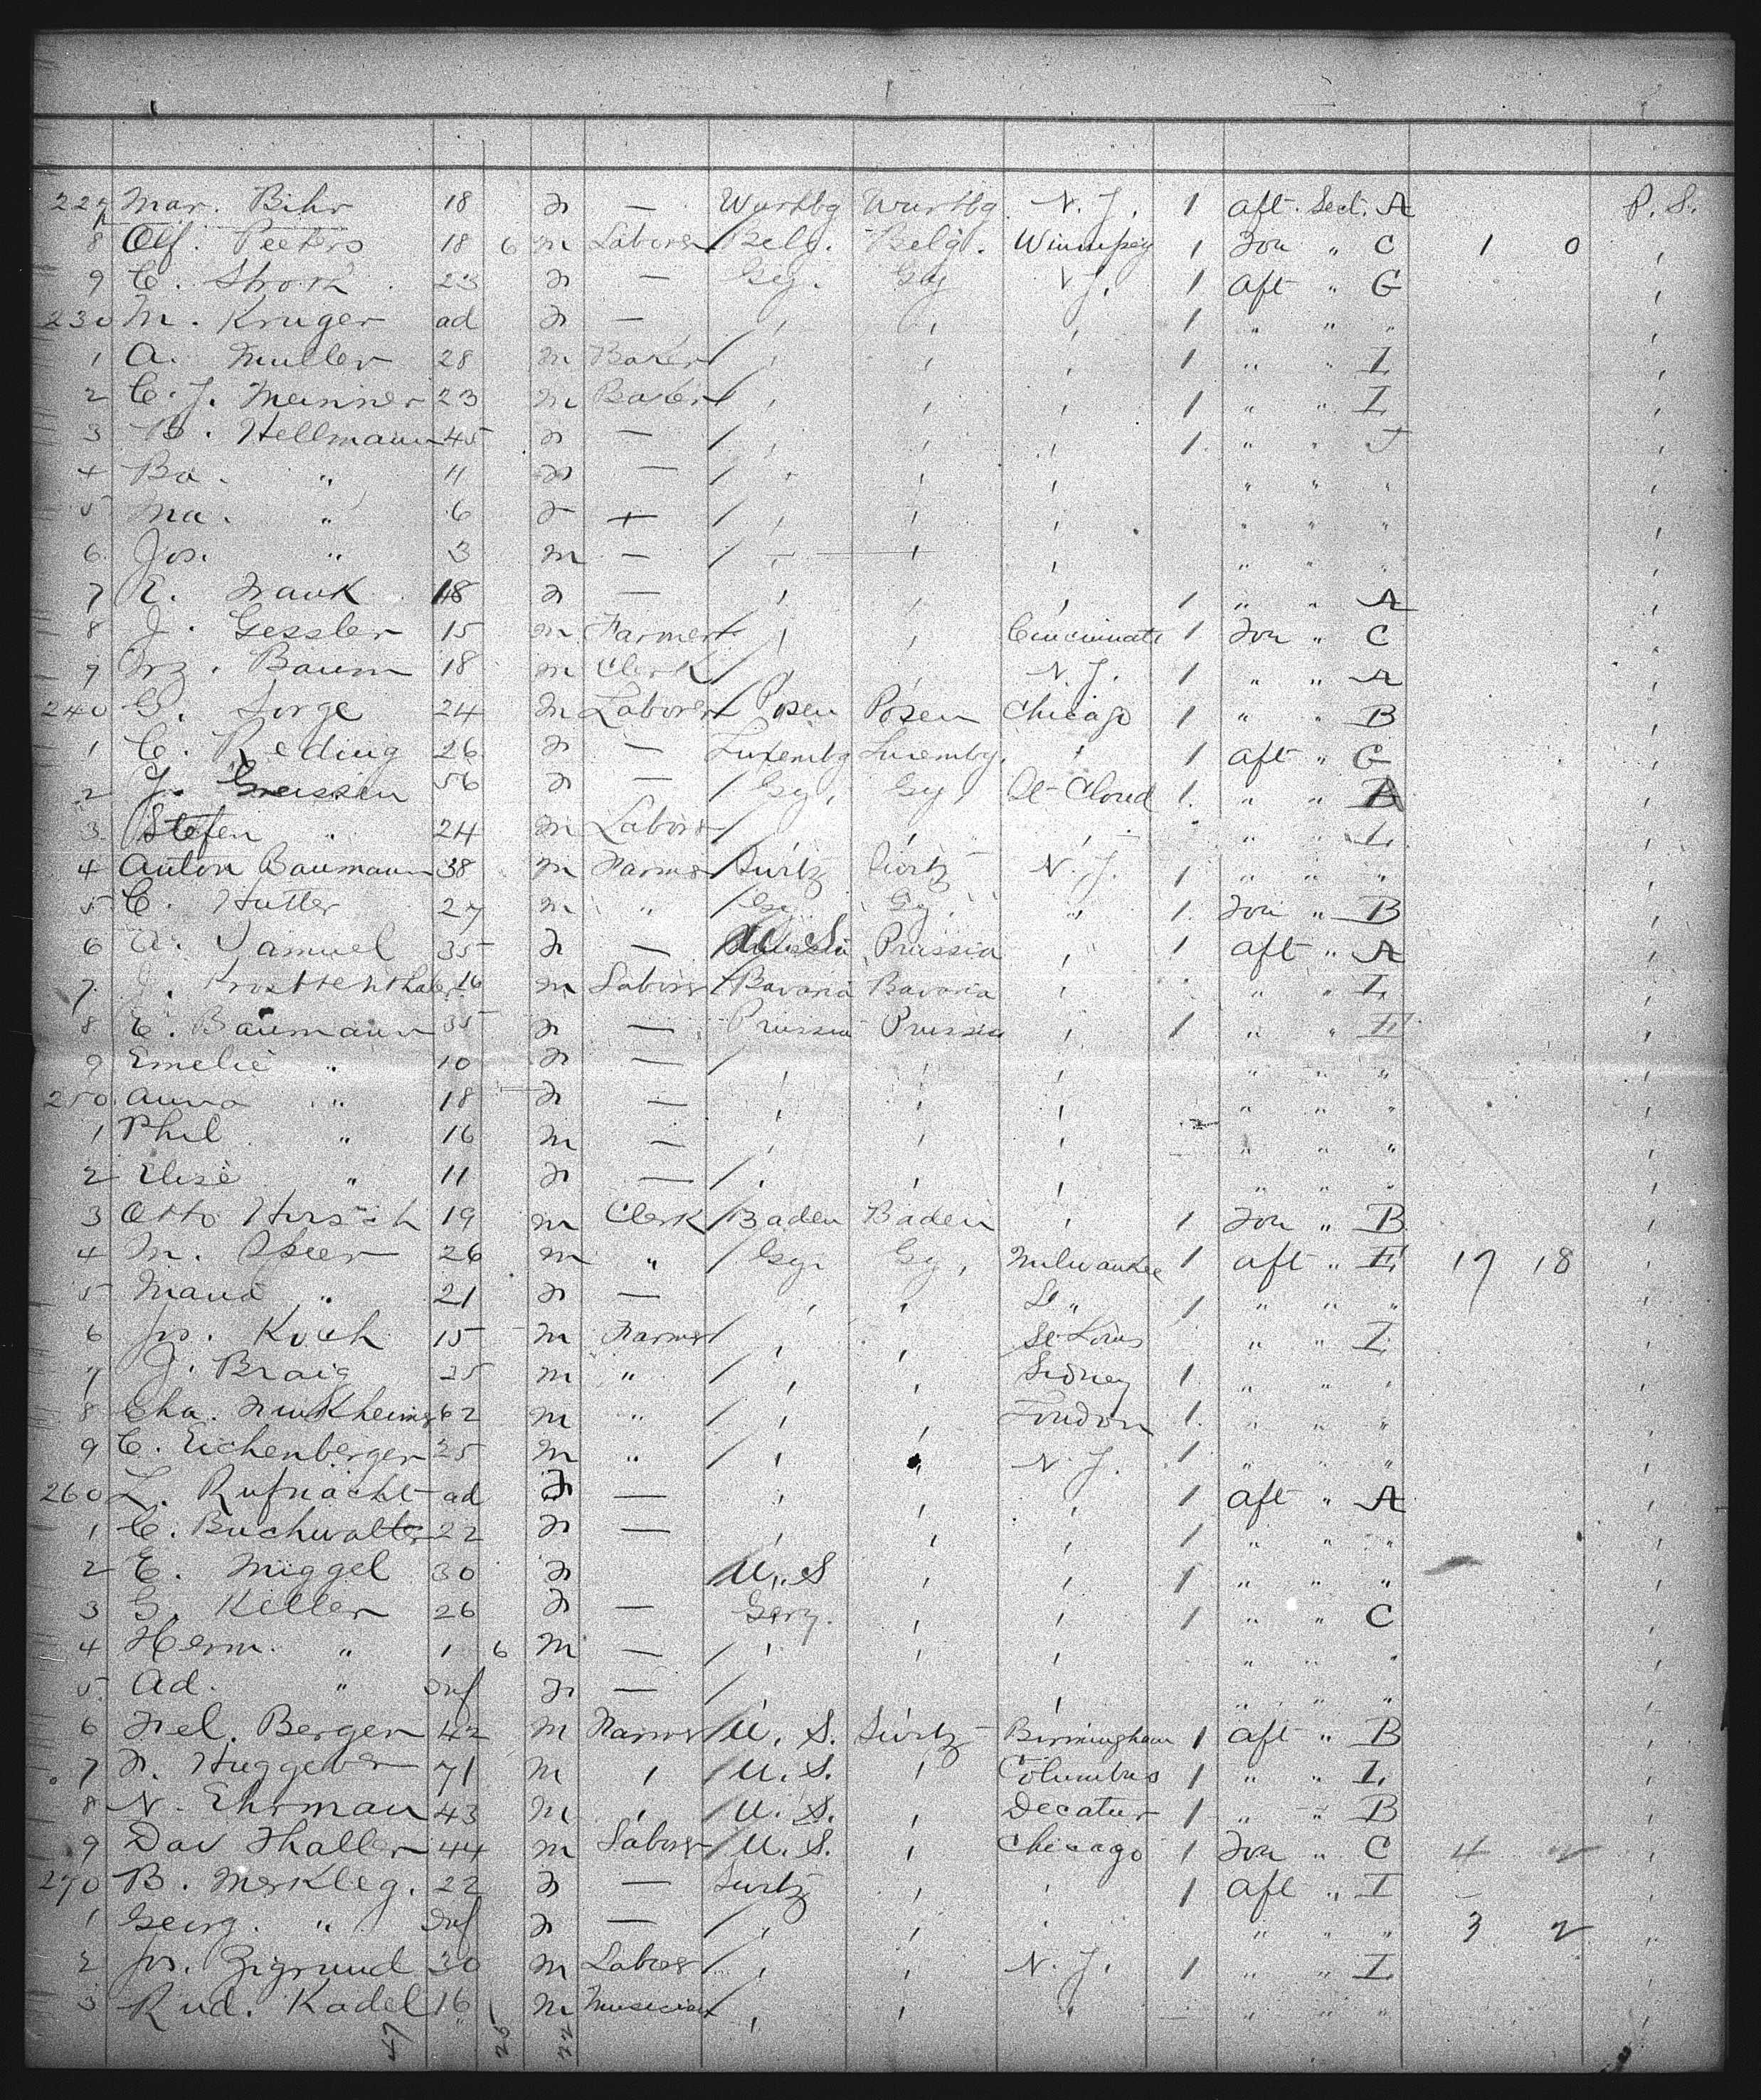 227 Mar. Bihr 18 — Wurttbg Wurttbg. N. J. 1 aft. Sect. A P. S.
8 Alf. Peeters 18 6 m Laborer / Belg. Belg. Winnipeg 1 For " C 1 0 ,
9 C. 23 — Gy. Gy N J. 1 aft " G ,
230 M. Kruger ad — , , , 1 " " " ,
1 A. Muller 28 m Baker / , , , 1 " " I ,
2 C. J. Meinner 23 m Baker / , , , 1 " " I ,
3 Hellmann 45 — / , , , 1 " " J ,
4 Ba. " 11 — / , , , " " " ,
5 Ma. " 6 + / , , , " " " ,
6 Jos. " 3 m — / , , , " " " ,
7 E. Frank 18 — , , , 1 " " A ,
8 J. Gessler 15 m Farmer / , , Cincinnati 1 For " C ,
9 Frz. Baum 18 m Clerk / , , N. J. 1 " " A ,
240 G. Sorge 24 m Laborer / Posen Posen Chicago 1 " " B ,
1 C. Reding 26 — Luxembg Luxembg. , 1 aft " G ,
2 J. 56 — / Gy, Gy, St Cloud 1 " " A ,
3 Stefen " 24 m Labor / , , , " " I ,
4 Anton Baumann 38 m Farmer / Switz Switz N. J. 1 " " " ,
5 C. Hutter 27 m " / Gy Gy. " 1 For " B ,
6 A. Samuel 35 — U. S. Prussia , 1 aft " A ,
7 16 m Laborer / Bavaria Bavaria , " " I ,
8 E. Baumann 35 — Prussia Prussia , 1 " " E ,
9 Emelie " 10 — / , , , " " " ,
250 Anna " 18 — , , , " " " ,
1 Phil " 16 m — , , , " " " ,
2 Elise " 11 — / , , , " " " ,
3 Otto Hirsch 19 m Clerk / Baden Baden , 1 For " B ,
4 M. 26 m " / Gy. Gy, Milwaukee 1 aft " E 17 18 ,
5 Maria " 21 — , , " 1 " " " ,
6 Jos. Koch 15 m Farmer / , , St Louis " " I ,
7 J. Braig 25 m " / , , Sidney 1 " " , ,
8 Cha. 62 m " / , , London 1 " " " ,
9 C. Eichenberger 25 m " / , , N. J. 1 " " " ,
260 L. Rufnacht ad — , , , 1 aft " A ,
1 C. Buchwalter 22 — , , , 1 " " " ,
2 E. Miggel 30 U. S , , 1 " " " ,
3 G. Keller 26 — Gery. , , 1 " " C ,
4 Herm. " 1 6 m — / , , , " " " ,
5 Ad. " Inf — / , , " " " ,
6 Fel. Berger 42 m Farmer / U. S. Switz Birmingham 1 aft " B ,
7 71 m , / U. S. , Columbus 1 " " I ,
8 N. Ehrman 43 m , / U. S. , Decatur 1 " " B ,
9 Dav Thaller 44 m Laborer / U. S. , Chicago 1 For " C 4 2 ,
270 B. Merkleg. 22 — Switz , , 1 aft " I ,
1 Georg. " Inf — / , , , " " " 3 2 ,
2 Jos. Zigrund 30 m Laborer / , , N. J. 1 " " I ,
3 Rud. Kadel 16 m Musician / , , , " " " ,
47 25 22